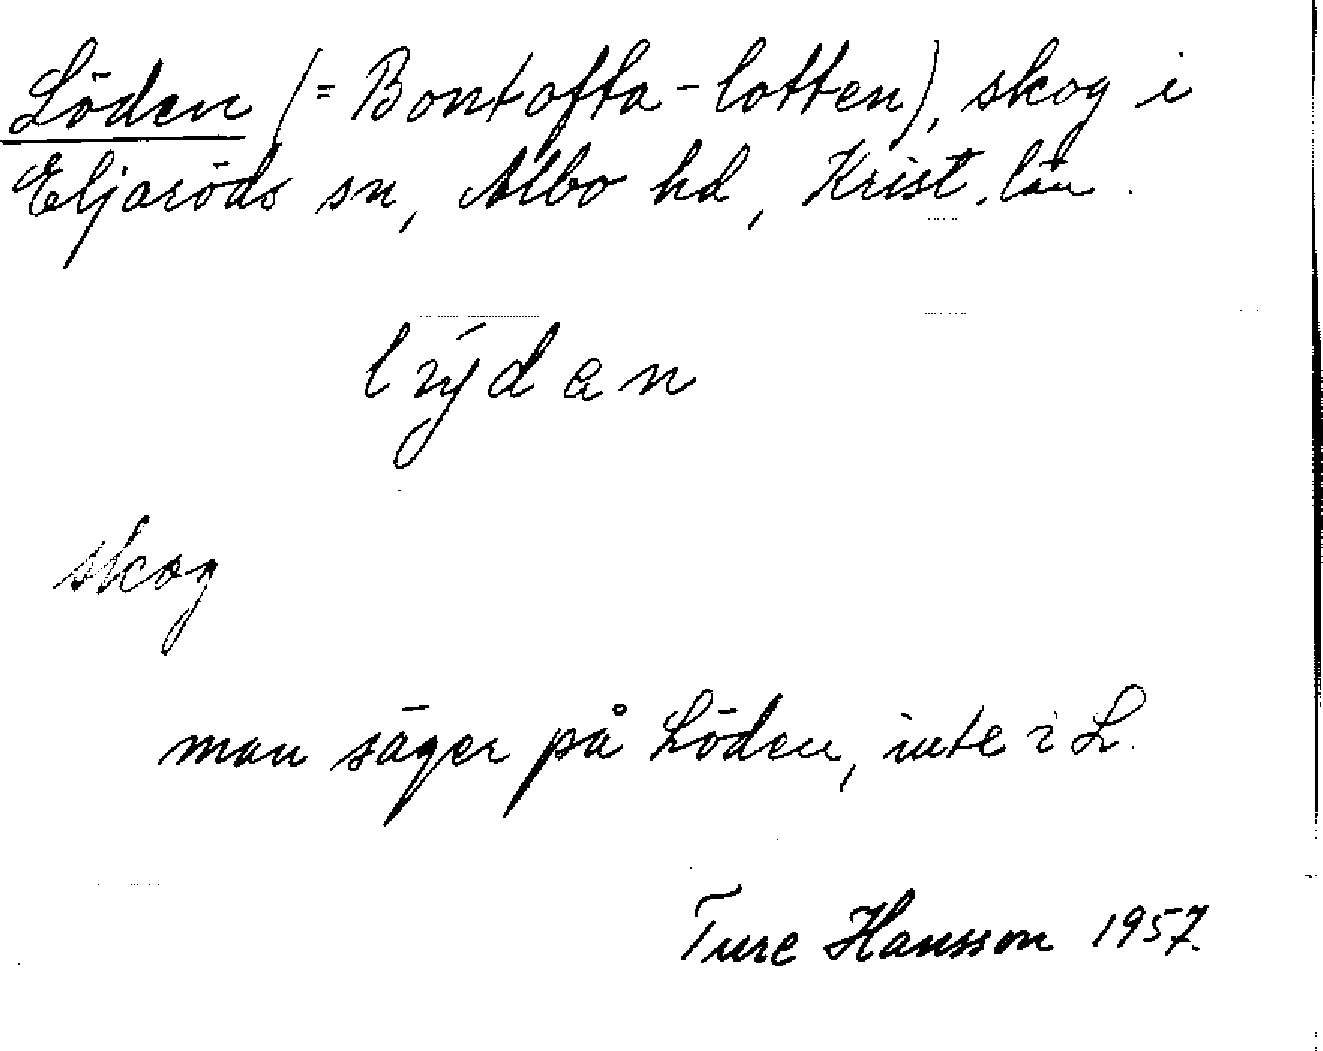 Löden (= Bontofta-lotten), skog i
Eljaröds sn, Albo hd, Krist. län.
skog
man säger på Löden, inte i L.
Ture Hansson 1957.